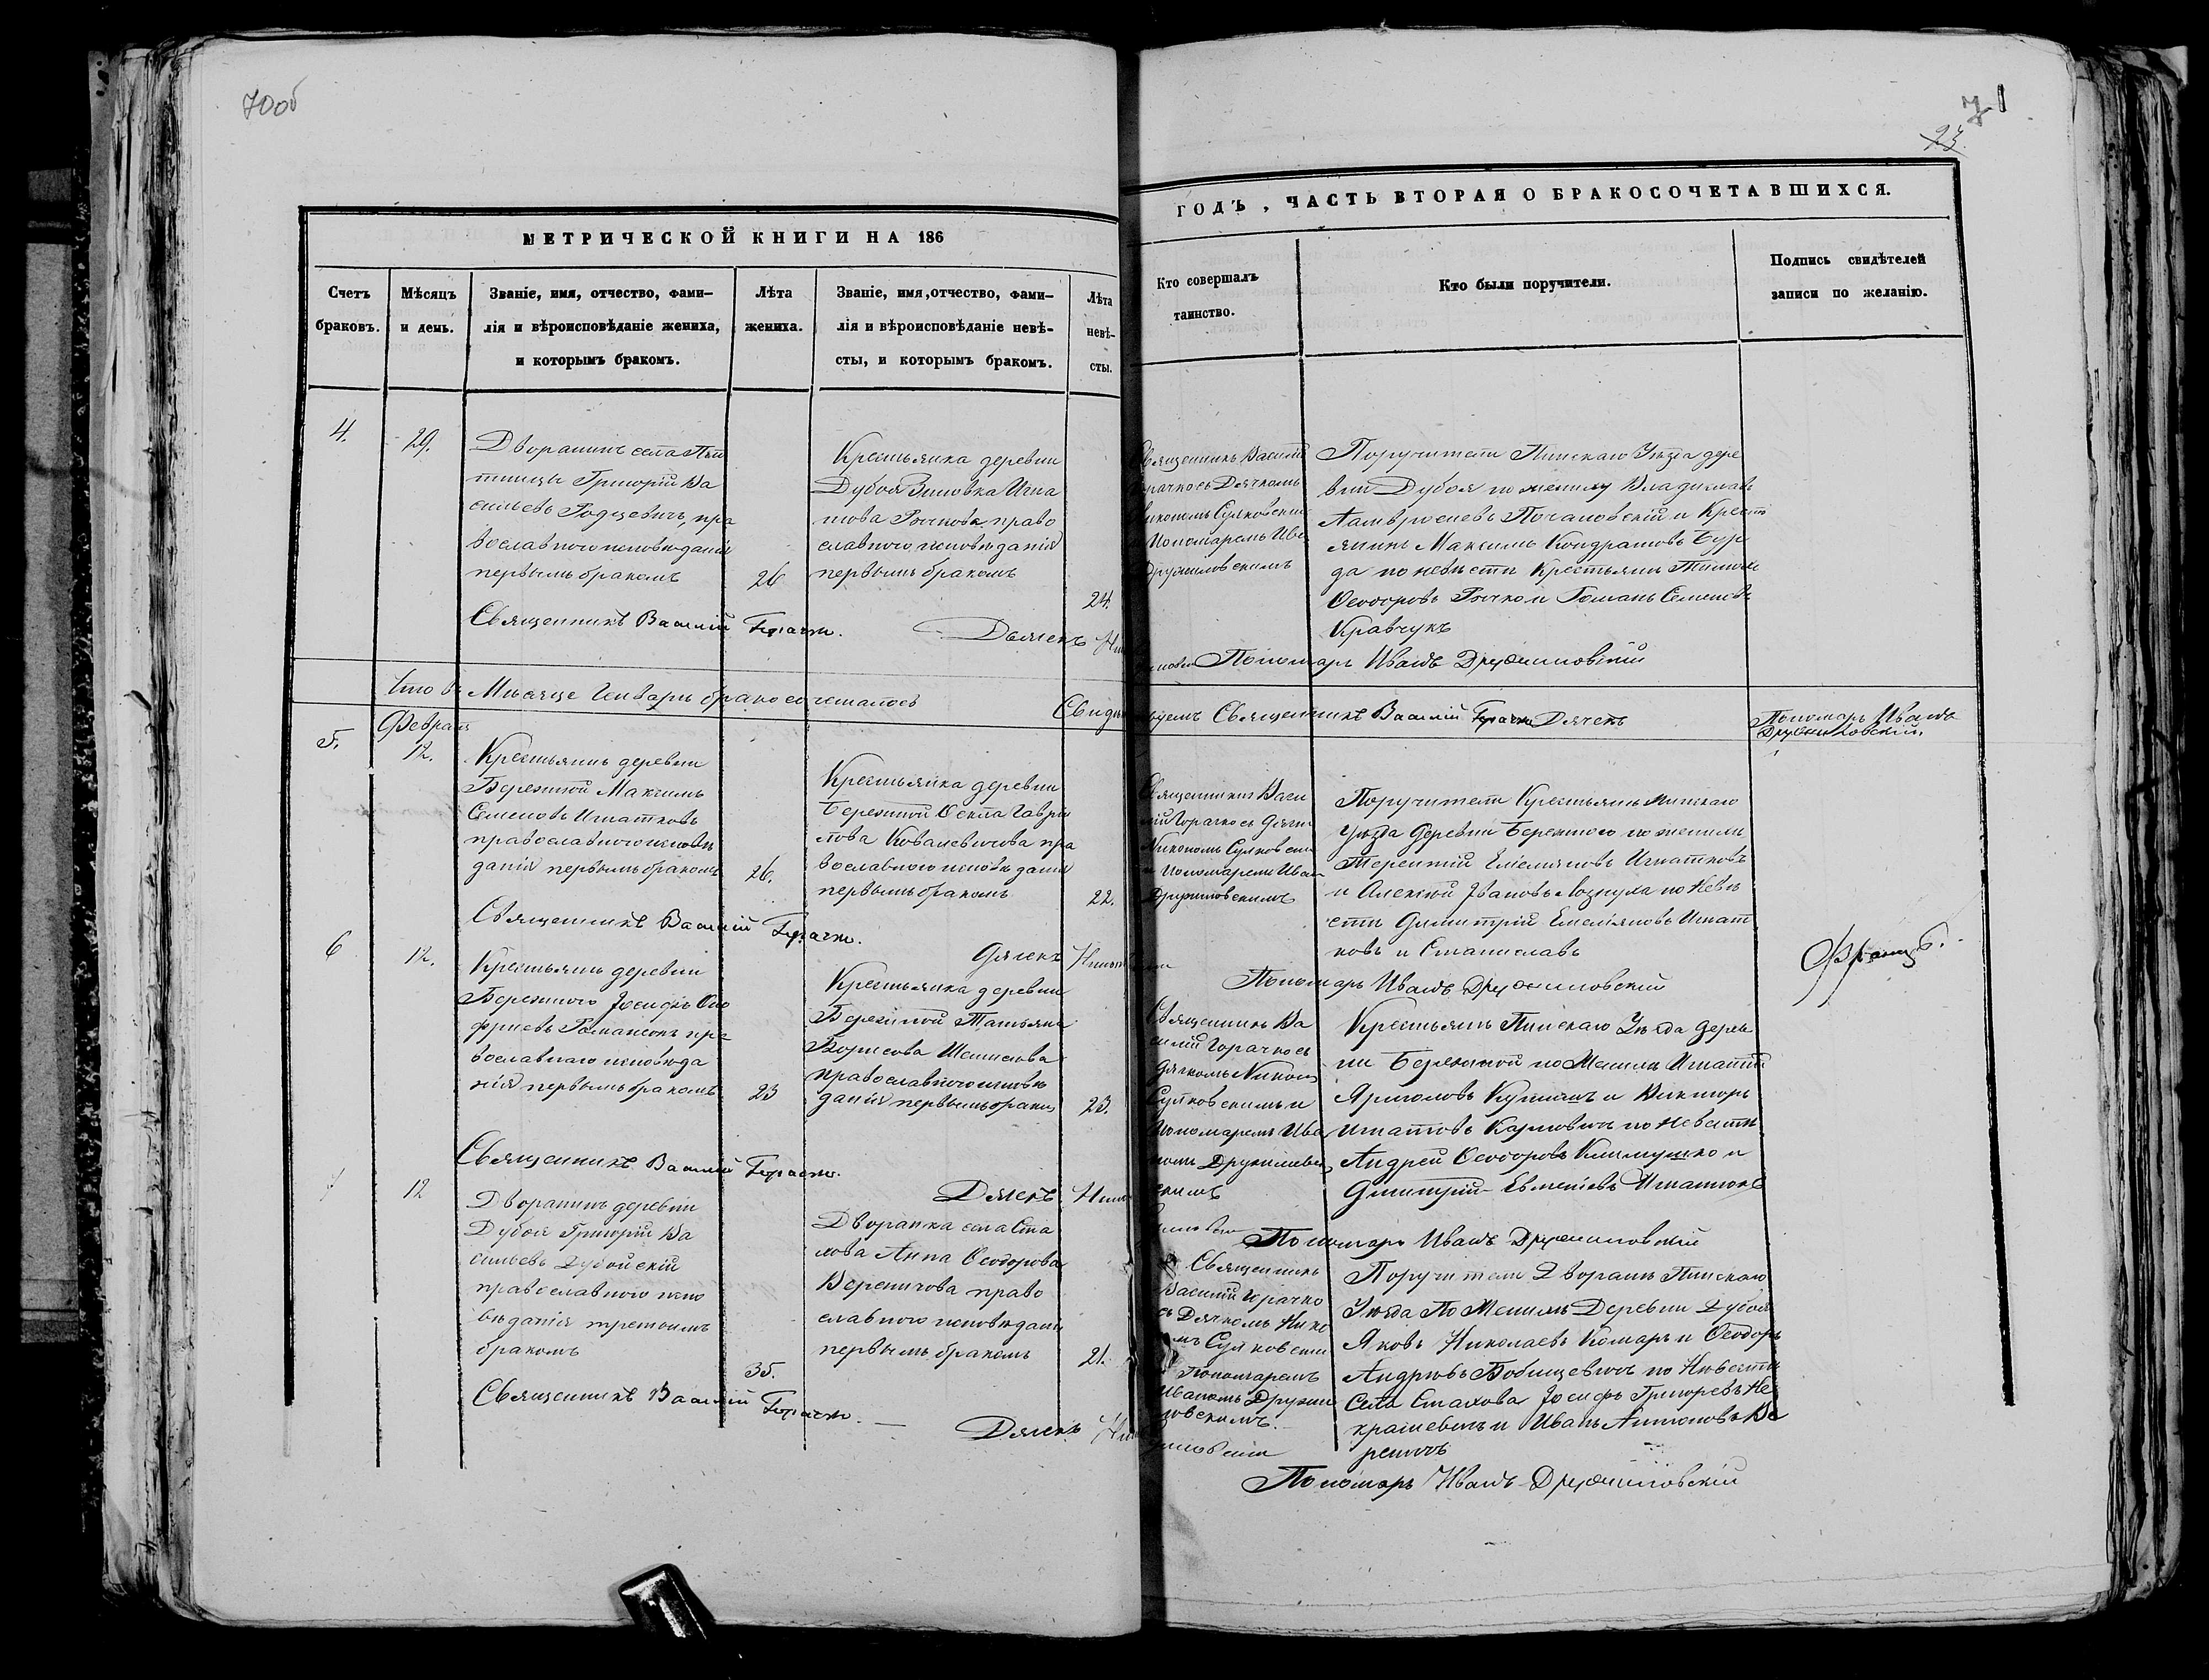 70об
71
23.
МЕТРИЧЕСКОЙ КНИГИ НА 186
ГОДЪ, ЧАСТЬ ВТОРАЯ О БРАКОСОЧЕТАВШИХСЯ.
Счетъ
браковъ.
Мѣсяцъ
и день.
Званіе, имя, отчество, фами-
лія и вѣроисповѣданіе жениха,
и которымъ бракомъ.
Лѣта
жениха.
Званіе, имя, отчество, фами-
лія и вѣроисповѣданіе невѣ-
сты, и которымъ бракомъ.
Лѣта
невѣ-
сты.
Кто совершалъ
таинство.
Кто были поручители.
Подпись свидѣтелей
записи по желанію.
4.
29.
Дворянинъ села
Григорій Ва
сильевъ Родцевичъ, пра
вославного исповѣданія
первымъ бракомъ
26
Крестьянка деревни
Дубоя Зиновка Игна
това право
славного исповѣданія
первымъ бракомъ
24.
Священникъ Василій
Горачко съ Дячкомъ
Никономъ Сулковским
и Пономаремъ Ива
Дружиловскимъ
Поручители Пинскаго Уѣзда дере
вни Дубоя по жениху Владиславъ
Амвросіевъ и Крест
янинъ Максимъ Кондратовъ Бур
да по невѣсти Крестьянин
Ѳеодоровъ и Романъ Семеновъ
Кравчукъ
Священникъ Василій Горачко.
Дьячекъ
Пономарь Иванъ Дружиловскій
Что въ Мѣсяце Генварь бракосочеталось
Свидѣ
Священникъ Василій Горачко Дячекъ
Пономарь Иванъ
Дружиловскій.
Февраля
5.
12.
Крестьянинъ деревни
Бережной Максимъ
Семеновъ Игнатковъ
православного исповѣ
данія первымъ бракомъ
26.
Крестьянка деревни
Бережной Ѳекла Гаври
лова Ковалевичова пра
вославного исповѣданія
первымъ бракомъ
22.
Священникъ Васи
лій Горачко съ Дячк
Никономъ Сулковским
и Пономарем Иван
Дружиловскимъ
Поручители Крестьянинъ Пинскаго
Уѣзда Деревни Бережного по женихи
Терентій Емелиановъ Игнатковъ
и Алексій Ивановъ по Невѣ
сти Димитрій Емельяновъ Игнат
ковъ и Станиславъ
Францъ.
Священникъ Василій Горачко.
Дячекъ Никон
Пономарь Иванъ Дружиловскій
6
12.
Крестьянинъ деревни
Бережного Іосифъ Оно
фриевъ Романюкъ пра
вославнаго исповѣда
нія первымъ бракомъ
23
Крестьянка деревни
Бережной Татьяна
Борисова
православного исповѣ
данія первымъ браком
23.
Священникъ Ва
силій Горачко съ
Дячкомъ Никон
Сулковскимъ и
Пономаремъ Ива
номъ Дружиловс
кимъ
Крестьянинъ Пинскаго Уѣзда Дерев
ни Бережной по Женихи Игнатій
Ярмоловъ и Викторъ
Игнатовъ Карповичъ по Невѣсти
Андрей Ѳеодоровъ Климушко и
Димитрій Игнатюкъ
Священникъ Василій Горачко.
Дячекъ Никон
Пономарь Иванъ Дружиловскій
7
12
Дворянинъ деревни
Дубоя Григорій Ва
сильевъ Дубойскій
православного испо
вѣданія третьимъ
бракомъ
35.
Дворанка села Ста
хова Анна Ѳеодорова
Вереничова право
славного исповѣдані
первымъ бракомъ
21.
Священникъ
Василій Горачко
съ Дячкомъ Нико
мъ Сулковским
Пономаремъ
Иваномъ Дружи
ловскимъ.
Поручители Дворанъ Пинскаго
Уѣзда По Женихи Деревни Дубоя
Яковъ Николаевъ Комаръ и Ѳеодоръ
Андрѣевъ по Невѣсти
Села Стахова Іосифъ Григоревъ Не
крашевичъ и Иванъ Антоновъ Ве
реничъ
Священникъ Василій Горачко.
Дячекъ
Пономарь Иванъ Дружиловскій